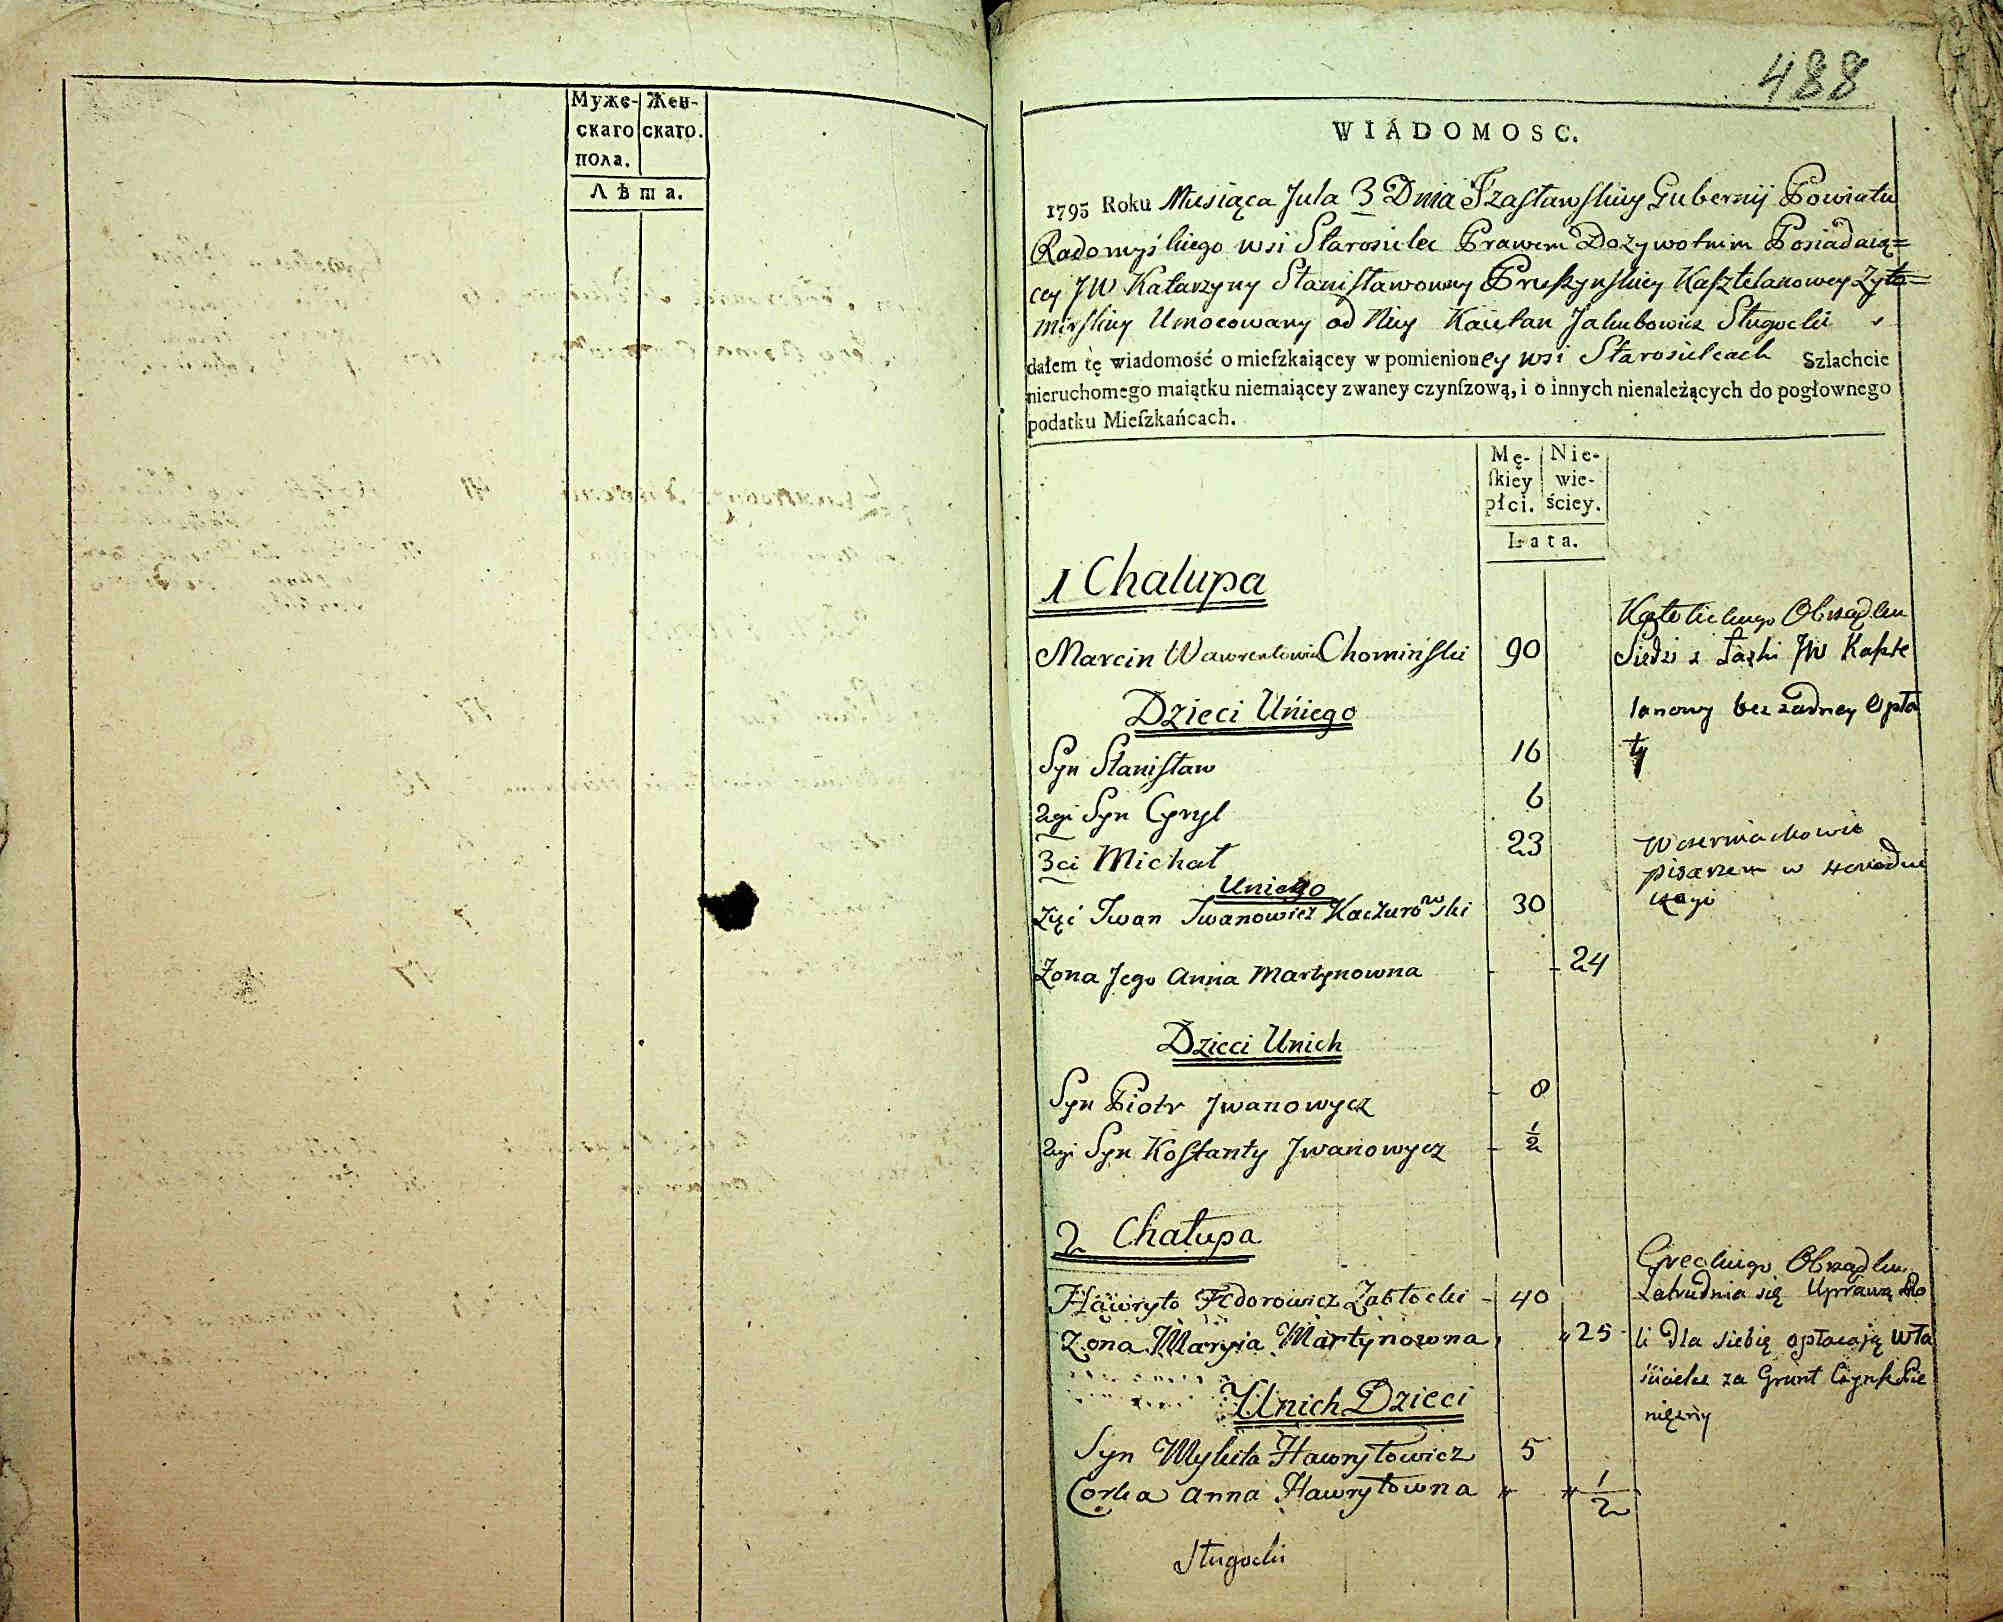 Муже-
скаго
пола.
Жен-
скаго.
Лѣта.
488
WIADOMOSC.
1795 Roku Miesiąca Jula 3 Dnia Izasławskiey Gubernij Powiatu
Radomyślskiego wsi Starosielec Prawem Dożywotnim Posiadaią=
cey JW Katarzyny Stanisławowey Pruszynskiey Kasztelanowey Żyto=
mirskiey Umocowany od Niey Kaietan Jakubowicz Sługocki
dałem tę wiadomość o mieſzkaiącey w pomienioney wsi Starosielcach Szlachcie
nieruchomego maiątku niemaiącey zwaney czynſzową, i o innych nienależących do pogłownego
podatku Mieſzkańcach.
Mę-
ſkiey
płci.
Nie-
wie-
ściey.
Lata.
1 Chalupa
Katolickiego Obrządku
Marcin Wawrentowicz Chomiński 90 Siedzi z Łaski JW Kaszte
Dzieci Uniego
lanowy bez zadney Opła
Syn Stanisław 16 ty
2gi Syn Cyryl 6
3ci Michał 23
pisarzem w
Uniego
Zięć Iwan Iwanowicz Kaczurowski 30
Żona Jego Anna Martynowna 24
Dzieci Unich
Syn Piotr Jwanowycz 8
2gi Syn Kostanty Jwanowycz 1/2
2 Chałupa
Greckiego Obrządku
Hawryło Fedorowicz Zabłocki 40 Zatrudnia się Uprawą Ro
Zona Maryia Martynowna 25 li dla siebie opłacają wła
ścicielce za Grunt Czynsz Pie
Unich Dzieci
niężny
Syn Mykita Hawryłowicz 5
Corka Anna Hawryłowna 1/2
Sługocki